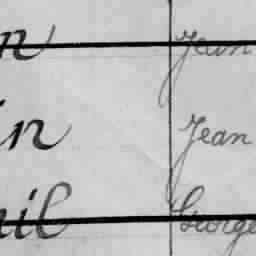 n Jean
in Jean
il George